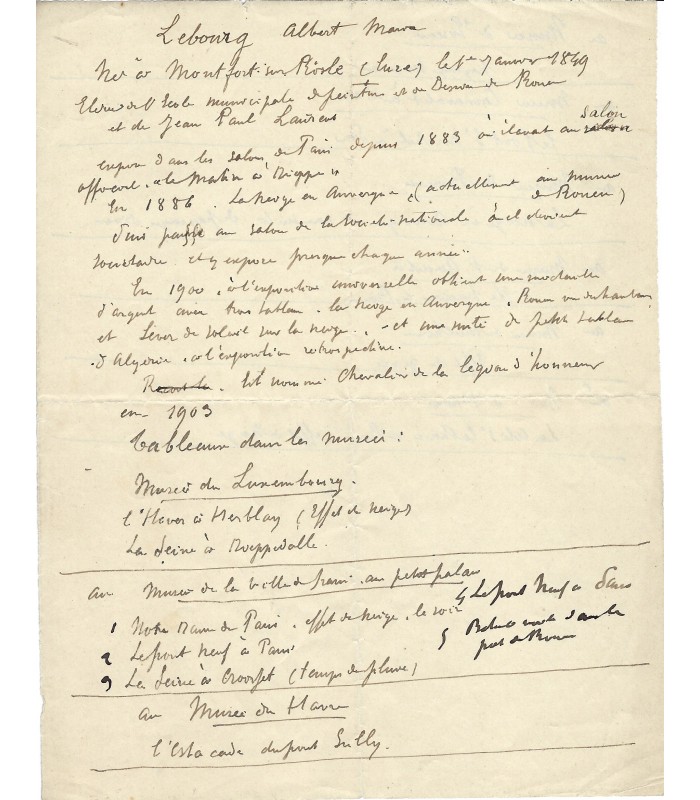 Lebourg Albert Marie
Né à Montfort-sur-Risle (Eure) le 1er Janvier 1849
Elève de l'Ecole municipale de peinture et de Dessin de Rouen
et de Jean Paul Laurens
expose dans les salons de Paris depuis 1883 où il avait au salon salon
"le Matin à Dieppe"
En 1886. La neige en Auvergne, (actuellement au musée de Rouen)
puis passe au salon de la Société nationale où il devient
sociétaire et y expose presque chaque année.
En 1900, à l'exposition universelle obtient une médaille
d'argent avec trois tableaux. la neige en Auvergne, Rouen vu des hauteurs
et Lever de soleil sur la neige. - et une suite de petits tableaux
d'Algérie à l'exposition rétrospective.
Est nommé Chevalier de la légion d'honneur
en 1903
Tableaux dans les musées :
Musée du Luxembourg.
l'Hiver à Herblay (Effet de neige)
La Seine à Dieppedalle.
au Musée de la Ville de Paris. au petit palais
1 Notre Dame de Paris. effet de neige, le soir
2 Le pont neuf à Paris
3 La Seine à Croisset (temps de pluie)
4 Le pont Neuf à Paris
5 dans le
port de Rouen
au Musée du Havre
l'Estacade du pont Sully.